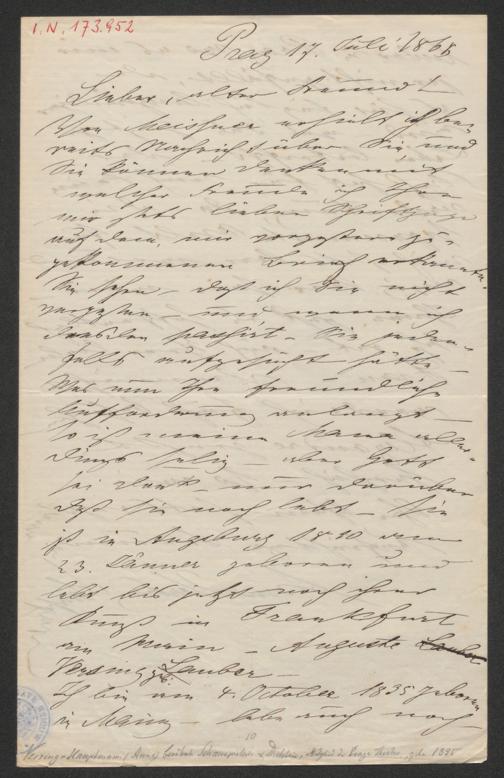 I.N. 173.952
Prag 17. Juli 1868
Lieber, alter Freund!
Von Meissner erhielt ich be-
reits Nachricht über Sie und
Sie können denken mit
welcher Freude ich Ihre
mir stets lieben Schriftzüge
auf dem, mir vorgestern zu-
gekommenen Brief erkannte.
Sie sehen – daß ich Sie nicht
vergessen – und wenn ich
Dresden passirt – Sie jeden-
falls aufgesucht hätte –
Was nun Ihre freundliche
Aufforderung anlangt –
so ist meine Mama aller-
dings selig – aber Gott
sei Dank – nur darüber
daß sie noch lebt – Sie
ist in Augsburg 1810 am
23. Jänner geboren und
lebt bis jetzt noch ihrer
Kunst in Frankfurt
am Main – Auguste Lauber
Versing Lauber –
Ich bin am 4. October 1835 geboren
in Mainz – lebe auch noch
10
Versing-Hauptmann (Anna) Schauspielerin Mitglied d. Prager Theaters, geb. 1835